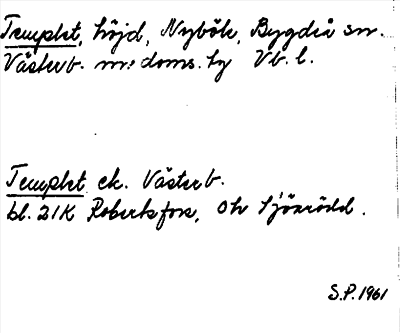 Templet, höjd, Nyböle, Bygdeå sn.
Västerb. m:a doms. tg Vb. l.
Templet ek. Västerb.
bl. 21K Robertsfors, OV Sjöarödd.
S.P. 1961